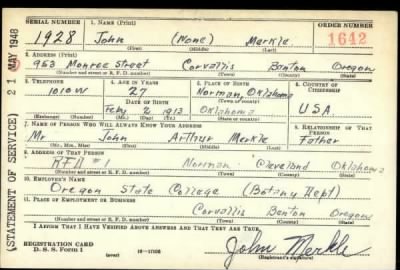 SERIAL NUMBER 1. NAME (Print) ORDER NUMBER
1928 John (None) Merkle 1642
(First) (Middle) (Last)
2. ADDRESS (Print)
953 Monroe Street Corvallis Benton Oregon
(Number and street or R. F. D. number) (Town) (County) (State)
3. TELEPHONE 4. AGE IN YEARS 5. PLACE OF BIRTH 6. COUNTRY OF CITIZENSHIP
1010W 27 Norman, Oklahoma
DATE OF BIRTH (Town or county)
Feby 2 1913 Oklahoma USA
(Exchange) (Number) (Mo.) (Day) (Yr.) (State or country)
7. NAME OF PERSON WHO WILL ALWAYS KNOW YOUR ADDRESS 8. RELATIONSHIP OF THAT PERSON
Mr John Arthur Merkle Father
(Mr., Mrs., Miss) (First) (Middle) (Last)
9. ADDRESS OF THAT PERSON
RFD #1 Norman Cleveland Oklahoma
(Number and street or R. F. D. number) (Town) (County) (State)
10. EMPLOYER'S NAME
Oregon State College (Botany Dept)
11. PLACE OF EMPLOYMENT OR BUSINESS
Corvallis Benton Oregon
(Number and street or R. F. D. number) (Town) (County) (State)
I AFFIRM THAT I HAVE VERIFIED ABOVE ANSWERS AND THAT THEY ARE TRUE.
REGISTRATION CARD
D. S. S. Form 1 John Merkle
(Registrant's signature)
(STATEMENT OF SERVICE) 21 MAY 1948